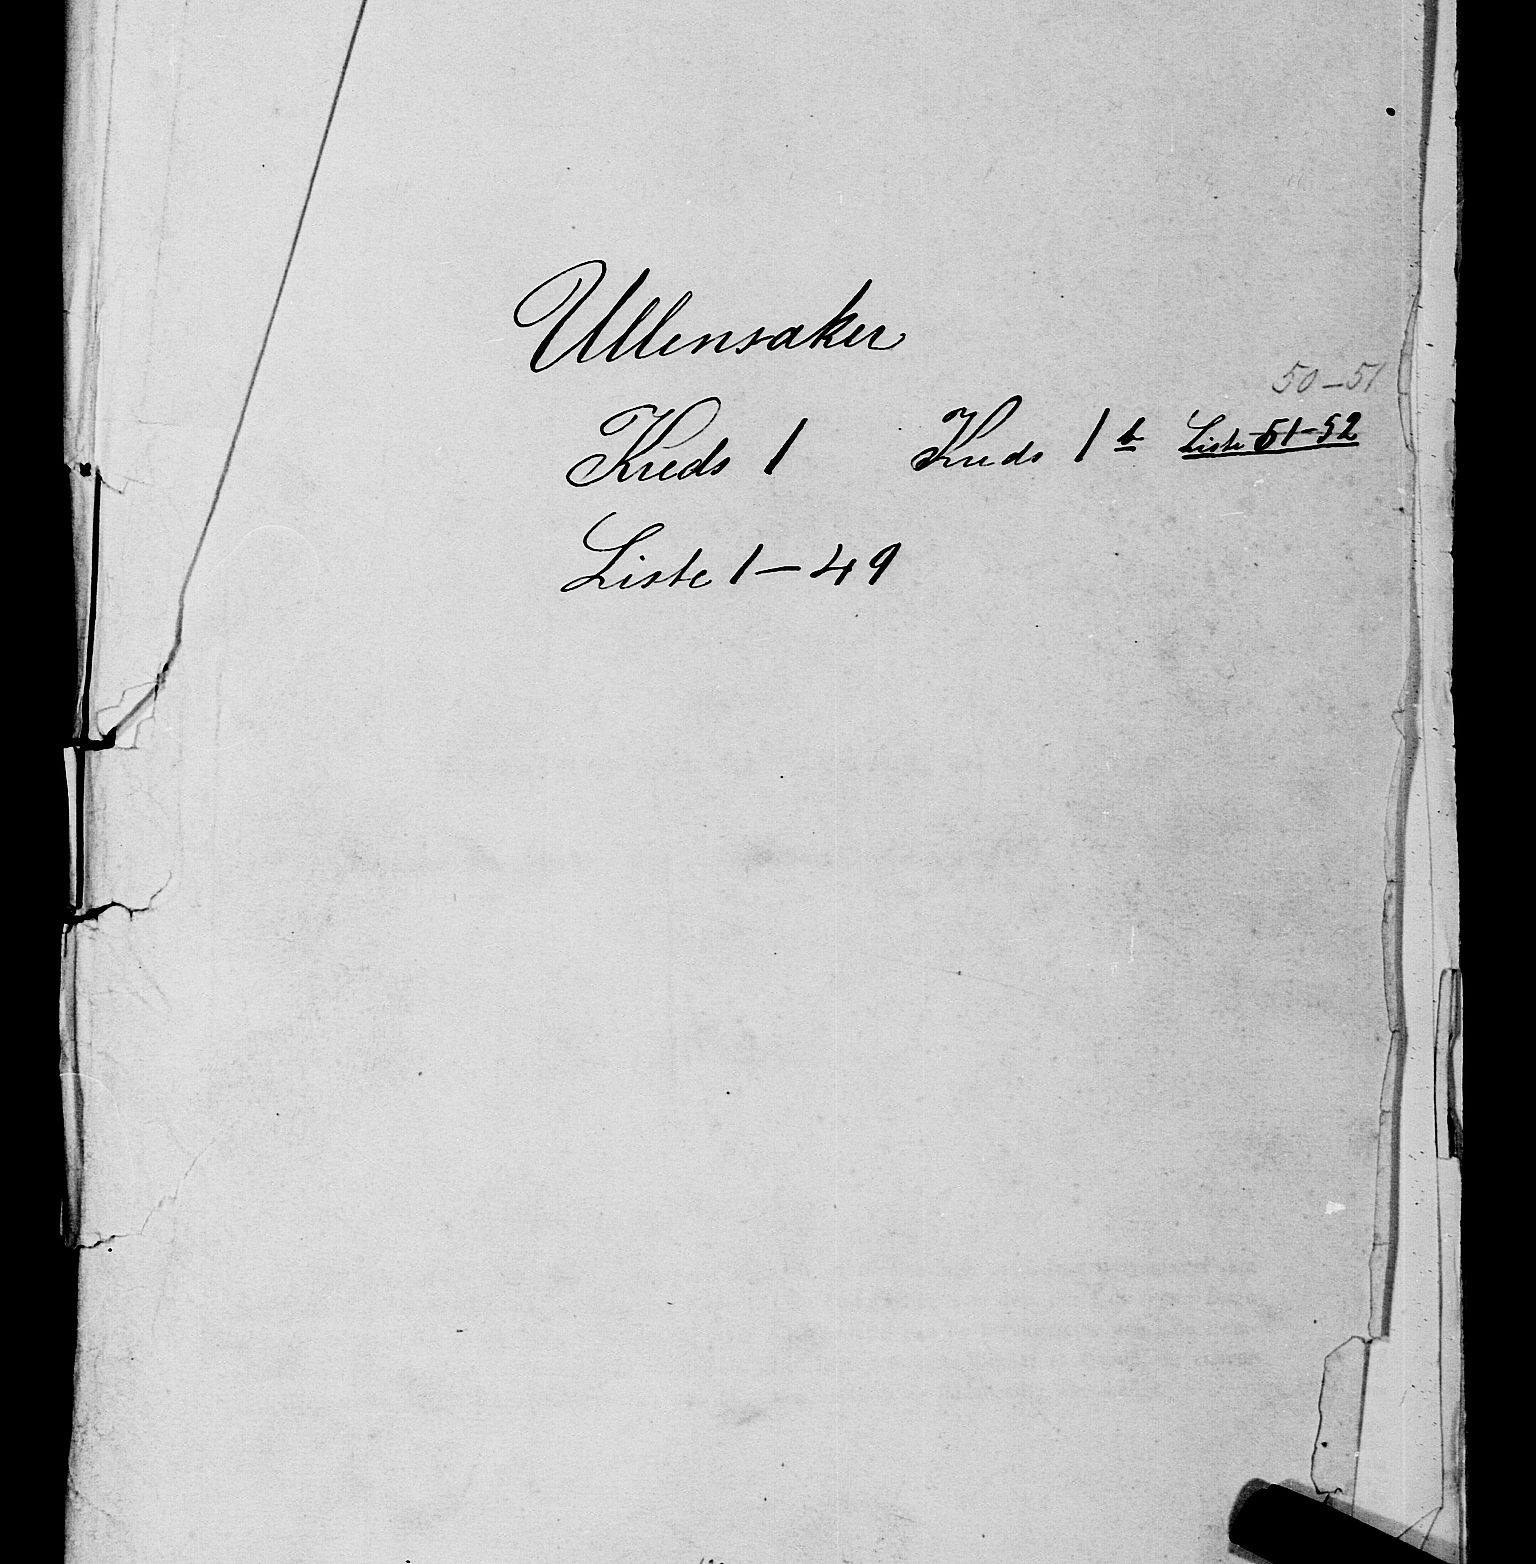 Ullensaker
50-51
Kreds 1 Kreds 1 b Liste 51-52
Liste 1-49